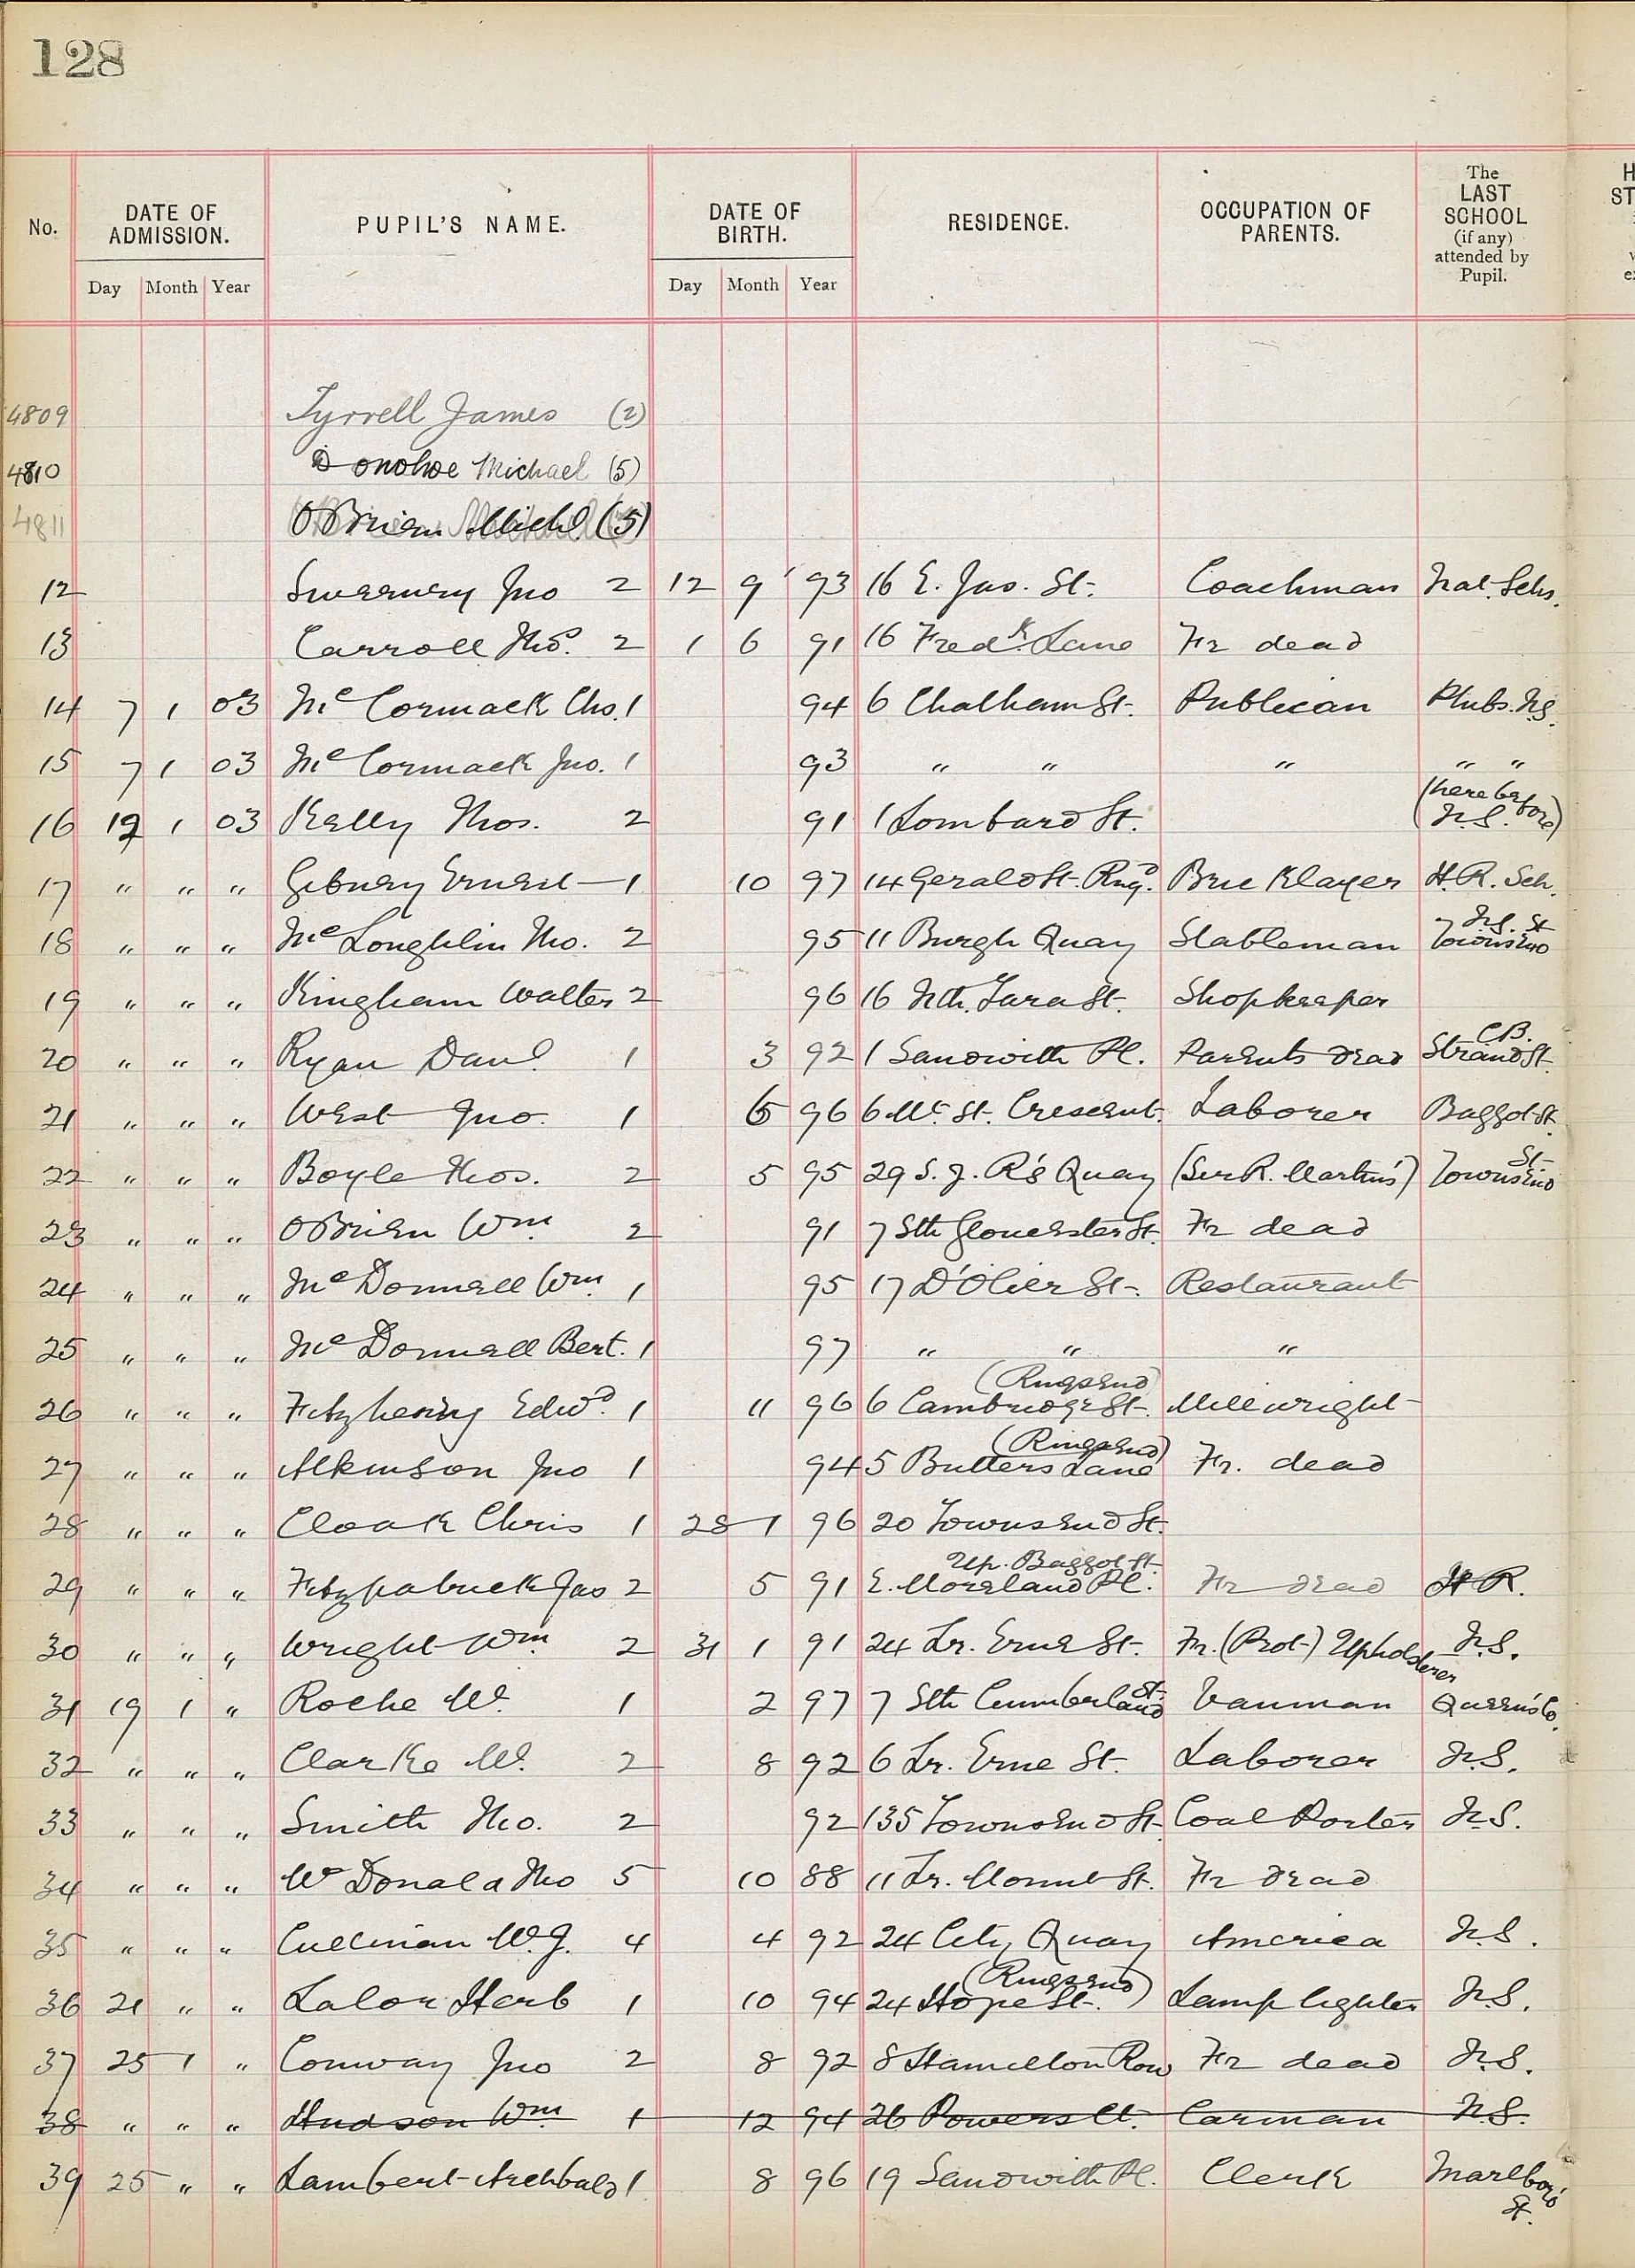 128
No. DATE OF ADMISSION. PUPIL'S NAME. DATE OF BIRTH. RESIDENCE. OCCUPATION OF PARENTS. The LAST SCHOOL (if any) attended by Pupil.
Day Month Year Day Month Year
4809 Tyrrell James (2)
4810 Donohoe Michael (5)
4811 O'Brien Michl. (5)
12 Sweeney Jno 2 12 9 93 16 E. Jas. St. Coachman Nat. Schs.
13 Carroll Thos. 2 1 6 91 16 Fredk. Lane Fr dead
14 7 1 03 McCormack Chs. 1 94 6 Chatham St. Publican Phibs. NS.
15 7 1 03 McCormack Jno. 1 93 " " " " "
16 19 1 03 Kelly Thos. 2 91 1 Lombard St. (here before) N.S.
17 " " " Gibney Ernest 1 10 97 14 Gerald St. Rngd. Bricklayer H.R. Sch.
18 " " " McLoughlin Tho. 2 95 11 Burgh Quay Stableman N.S. Townsend St
19 " " " Kingham Walter 2 96 16 Nth. Tara St. Shopkeeper
20 " " " Ryan Danl. 1 3 92 1 Sandwith Pl. Parents dead C.B. Strand St.
21 " " " West Jno. 1 6 96 6 Mt. St. Crescent. Laborer Baggot St.
22 " " " Boyle Thos. 2 5 95 29 S. J. R's Quay (Sir R. Martin's) Townsend St.
23 " " " OBrien Wm. 2 91 7 Sth Gloucester St. Fr dead
24 " " " McDonnell Wm. 1 95 17 D'Olier St. Restaurant
25 " " " McDonnell Bert. 1 97 " " "
26 " " " Fitzhenry Edwd. 1 11 96 6 Cambridge St. (Ringsend) Millwright
27 " " " Atkinson Jno 1 94 5 Butlers Lane (Ringsend) Fr. dead
28 " " " Cloak Chris 1 28 1 96 20 Townsend St.
29 " " " Fitzpatrick Jas 2 5 91 E. Moreland Pl. Up. Baggot St. Fr dead H R.
30 " " " Wright Wm 2 31 1 91 24 Lr. Erne St. Fr. (Prot.) Upholsterer N.S.
31 19 1 " Roche W. 1 2 97 7 Sth Cumberland St. Vanman Queen's Co.
32 " " " Clarke W. 2 8 92 6 Lr. Erne St. Laborer N.S.
33 " " " Smith Tho. 2 92 135 Townsend St. Coal Porter N.S.
34 " " " McDonald Tho 5 10 88 11 Lr. Mount St. Fr dead
35 " " " Cullinan W.J. 4 4 92 24 City Quay America N.S.
36 21 " " Lalor Herb 1 10 94 24 Hope St. (Ringsend) Lamplighter N.S.
37 25 1 " Conway Jno 2 8 92 8 Hamilton Row Fr dead N.S.
38 " " " Hudson Wm 1 12 94 26 Powers Ct. Carman N.S.
39 25 " " Lambert Archbald 1 8 96 19 Sandwith Pl. Clerk Marlboro' St.